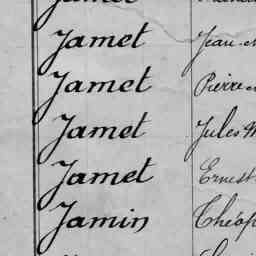 Jamet Jean
Jamet Pierre
Jamet Jules
Jamet Ernest
Jamin